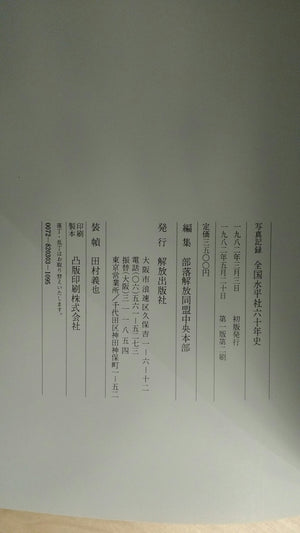 写真記録　全国水平社六十年史
一九八二年三月三日　初版発行
一九八二年五月二十日　第一版第二刷
定価三五〇〇円
編集　部落解放同盟中央本部
発行　解放出版社
大阪市浪速区久保吉一－六－一二
電話（〇六）五六一－五二七三
振替（大阪）三一一八五四
東京営業所／千代田区神田神保町一－五二
装幀　田村義也
印刷
製本　凸版印刷株式会社
落丁・乱丁はお取り替えいたします。
0072－820303－1095